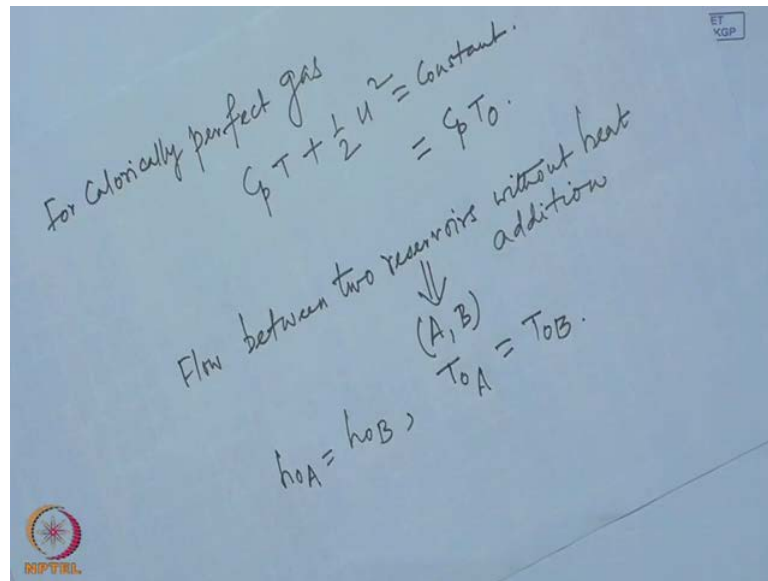 ET
KGP
For Calorically perfect gas
CpT + 1/2 u² = Constant.
= CpT0.
Flow between two reservoirs without heat
addition
⇓
(A, B)
h0A = h0B, T0A = T0B.
NPTEL